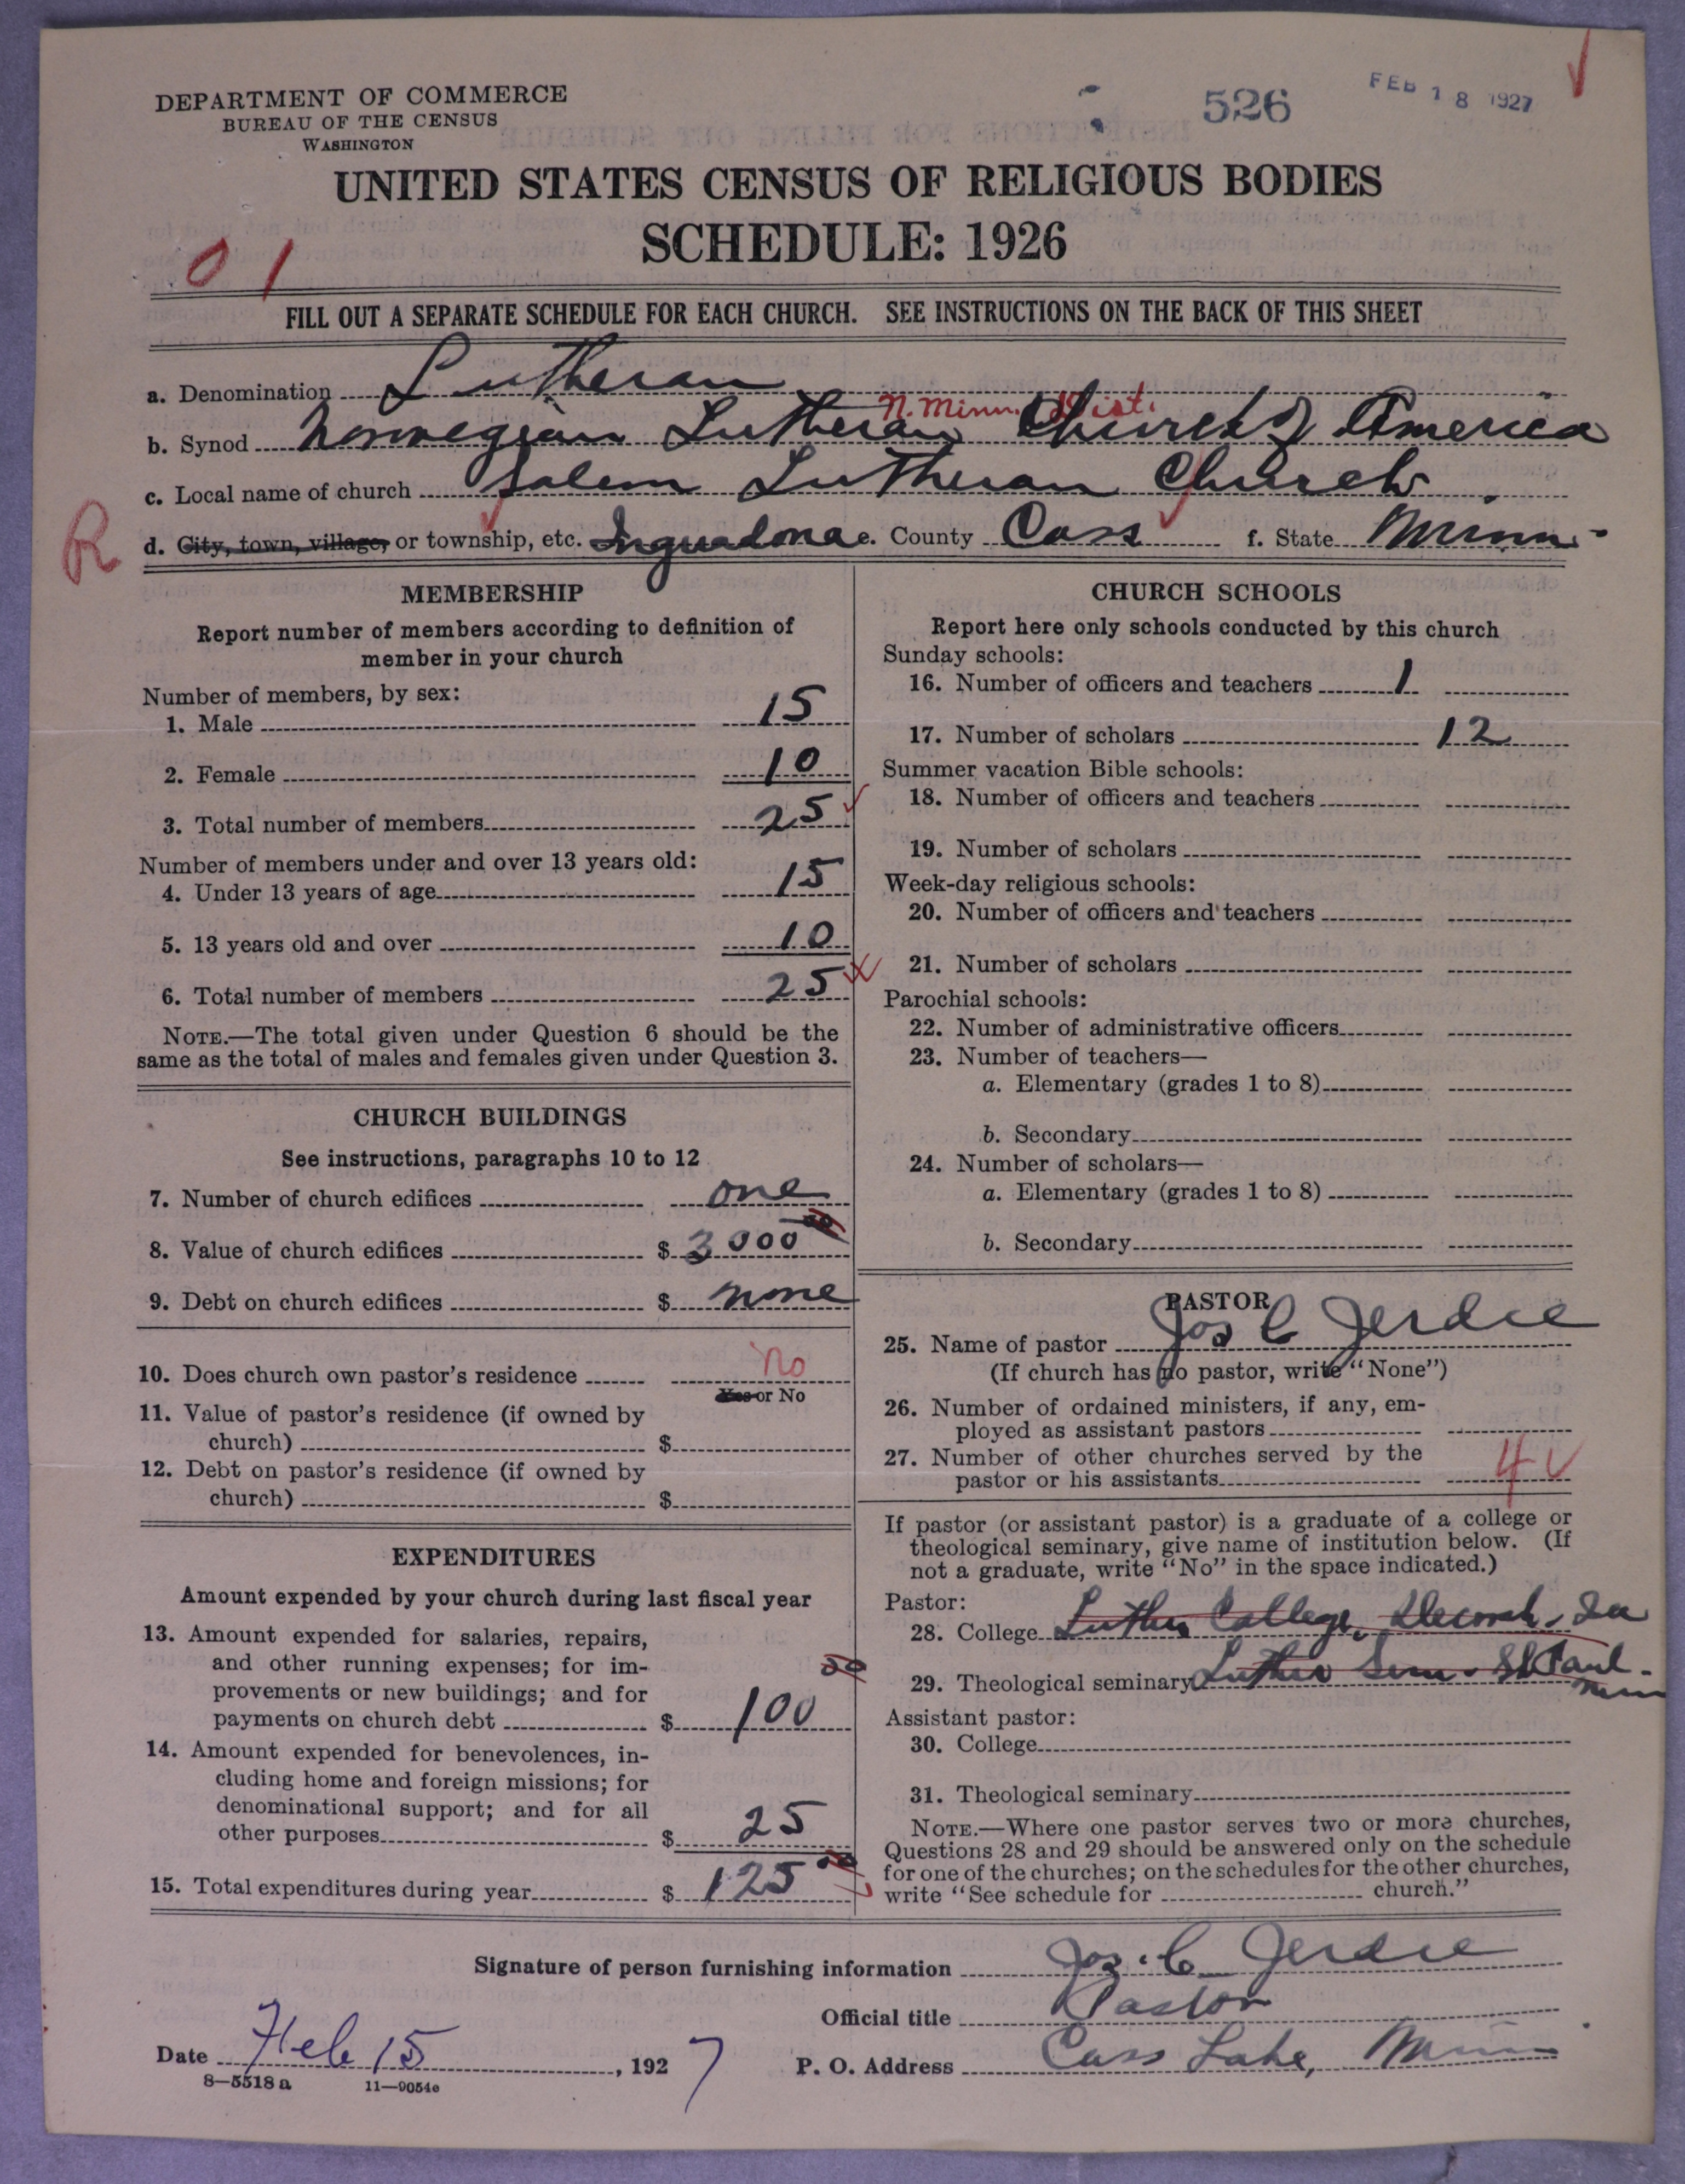 DEPARTMENT OF COMMERCE
BUREAU OF THE CENSUS
WASHINGTON
526
FEB 18 1927
UNITED STATES CENSUS OF RELIGIOUS BODIES
SCHEDULE: 1926
0 1
FILL OUT A SEPARATE SCHEDULE FOR EACH CHURCH. SEE INSTRUCTIONS ON THE BACK OF THIS SHEET
a. Denomination Lutheran
N. Minn. Dist.
b. Synod Norwegian Lutheran Church of America
c. Local name of church Salem Lutheran Church
R
d. City, town, village, or township, etc. Inguadona e. County Cass f. State Minn.
MEMBERSHIP
Report number of members according to definition of
member in your church
Number of members, by sex:
1. Male 15
2. Female 10
3. Total number of members 25
Number of members under and over 13 years old:
4. Under 13 years of age 15
5. 13 years old and over 10
6. Total number of members 25
NOTE.—The total given under Question 6 should be the
same as the total of males and females given under Question 3.
CHURCH BUILDINGS
See instructions, paragraphs 10 to 12
7. Number of church edifices one
8. Value of church edifices $ 3000 00
9. Debt on church edifices $ none
10. Does church own pastor's residence No
Yes or No
11. Value of pastor's residence (if owned by
church) $
12. Debt on pastor's residence (if owned by
church) $
EXPENDITURES
Amount expended by your church during last fiscal year
13. Amount expended for salaries, repairs,
and other running expenses; for im-
provements or new buildings; and for
payments on church debt $ 100 00
14. Amount expended for benevolences, in-
cluding home and foreign missions; for
denominational support; and for all
other purposes $ 25
15. Total expenditures during year $ 125 00
CHURCH SCHOOLS
Report here only schools conducted by this church
Sunday schools:
16. Number of officers and teachers 1
17. Number of scholars 12
Summer vacation Bible schools:
18. Number of officers and teachers
19. Number of scholars
Week-day religious schools:
20. Number of officers and teachers
21. Number of scholars
Parochial schools:
22. Number of administrative officers
23. Number of teachers—
a. Elementary (grades 1 to 8)
b. Secondary
24. Number of scholars—
a. Elementary (grades 1 to 8)
b. Secondary
PASTOR
25. Name of pastor Jos C Jerdee
(If church has no pastor, write "None")
26. Number of ordained ministers, if any, em-
ployed as assistant pastors
27. Number of other churches served by the
pastor or his assistants 4
If pastor (or assistant pastor) is a graduate of a college or
theological seminary, give name of institution below. (If
not a graduate, write "No" in the space indicated.)
Pastor:
28. College Luther College, Decorah, Ia
29. Theological seminary Luther Sem. St Paul. Minn
Assistant pastor:
30. College
31. Theological seminary
NOTE.—Where one pastor serves two or more churches,
Questions 28 and 29 should be answered only on the schedule
for one of the churches; on the schedules for the other churches,
write "See schedule for church."
Signature of person furnishing information Jos. C Jerdee
Official title Pastor
Date Feb 15, 1927
P. O. Address Cass Lake, Minn
8—5518 a 11—9054e